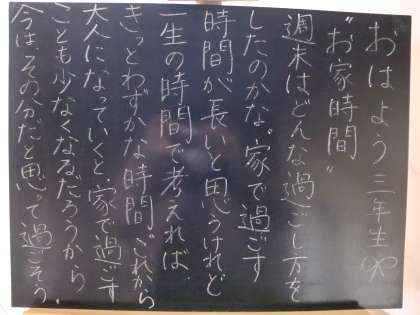 おはよう三年生(火)
"お家時間"
週末はどんな過ごし方を
したのかな。家で過ごす
時間が長いと思うけれど
一生の時間で考えれば、
きっとわずかな時間。これから
大人になっていくと、家で過ごす
ことも少なくなるだろうから
今は、その分だと思って過ごそう。